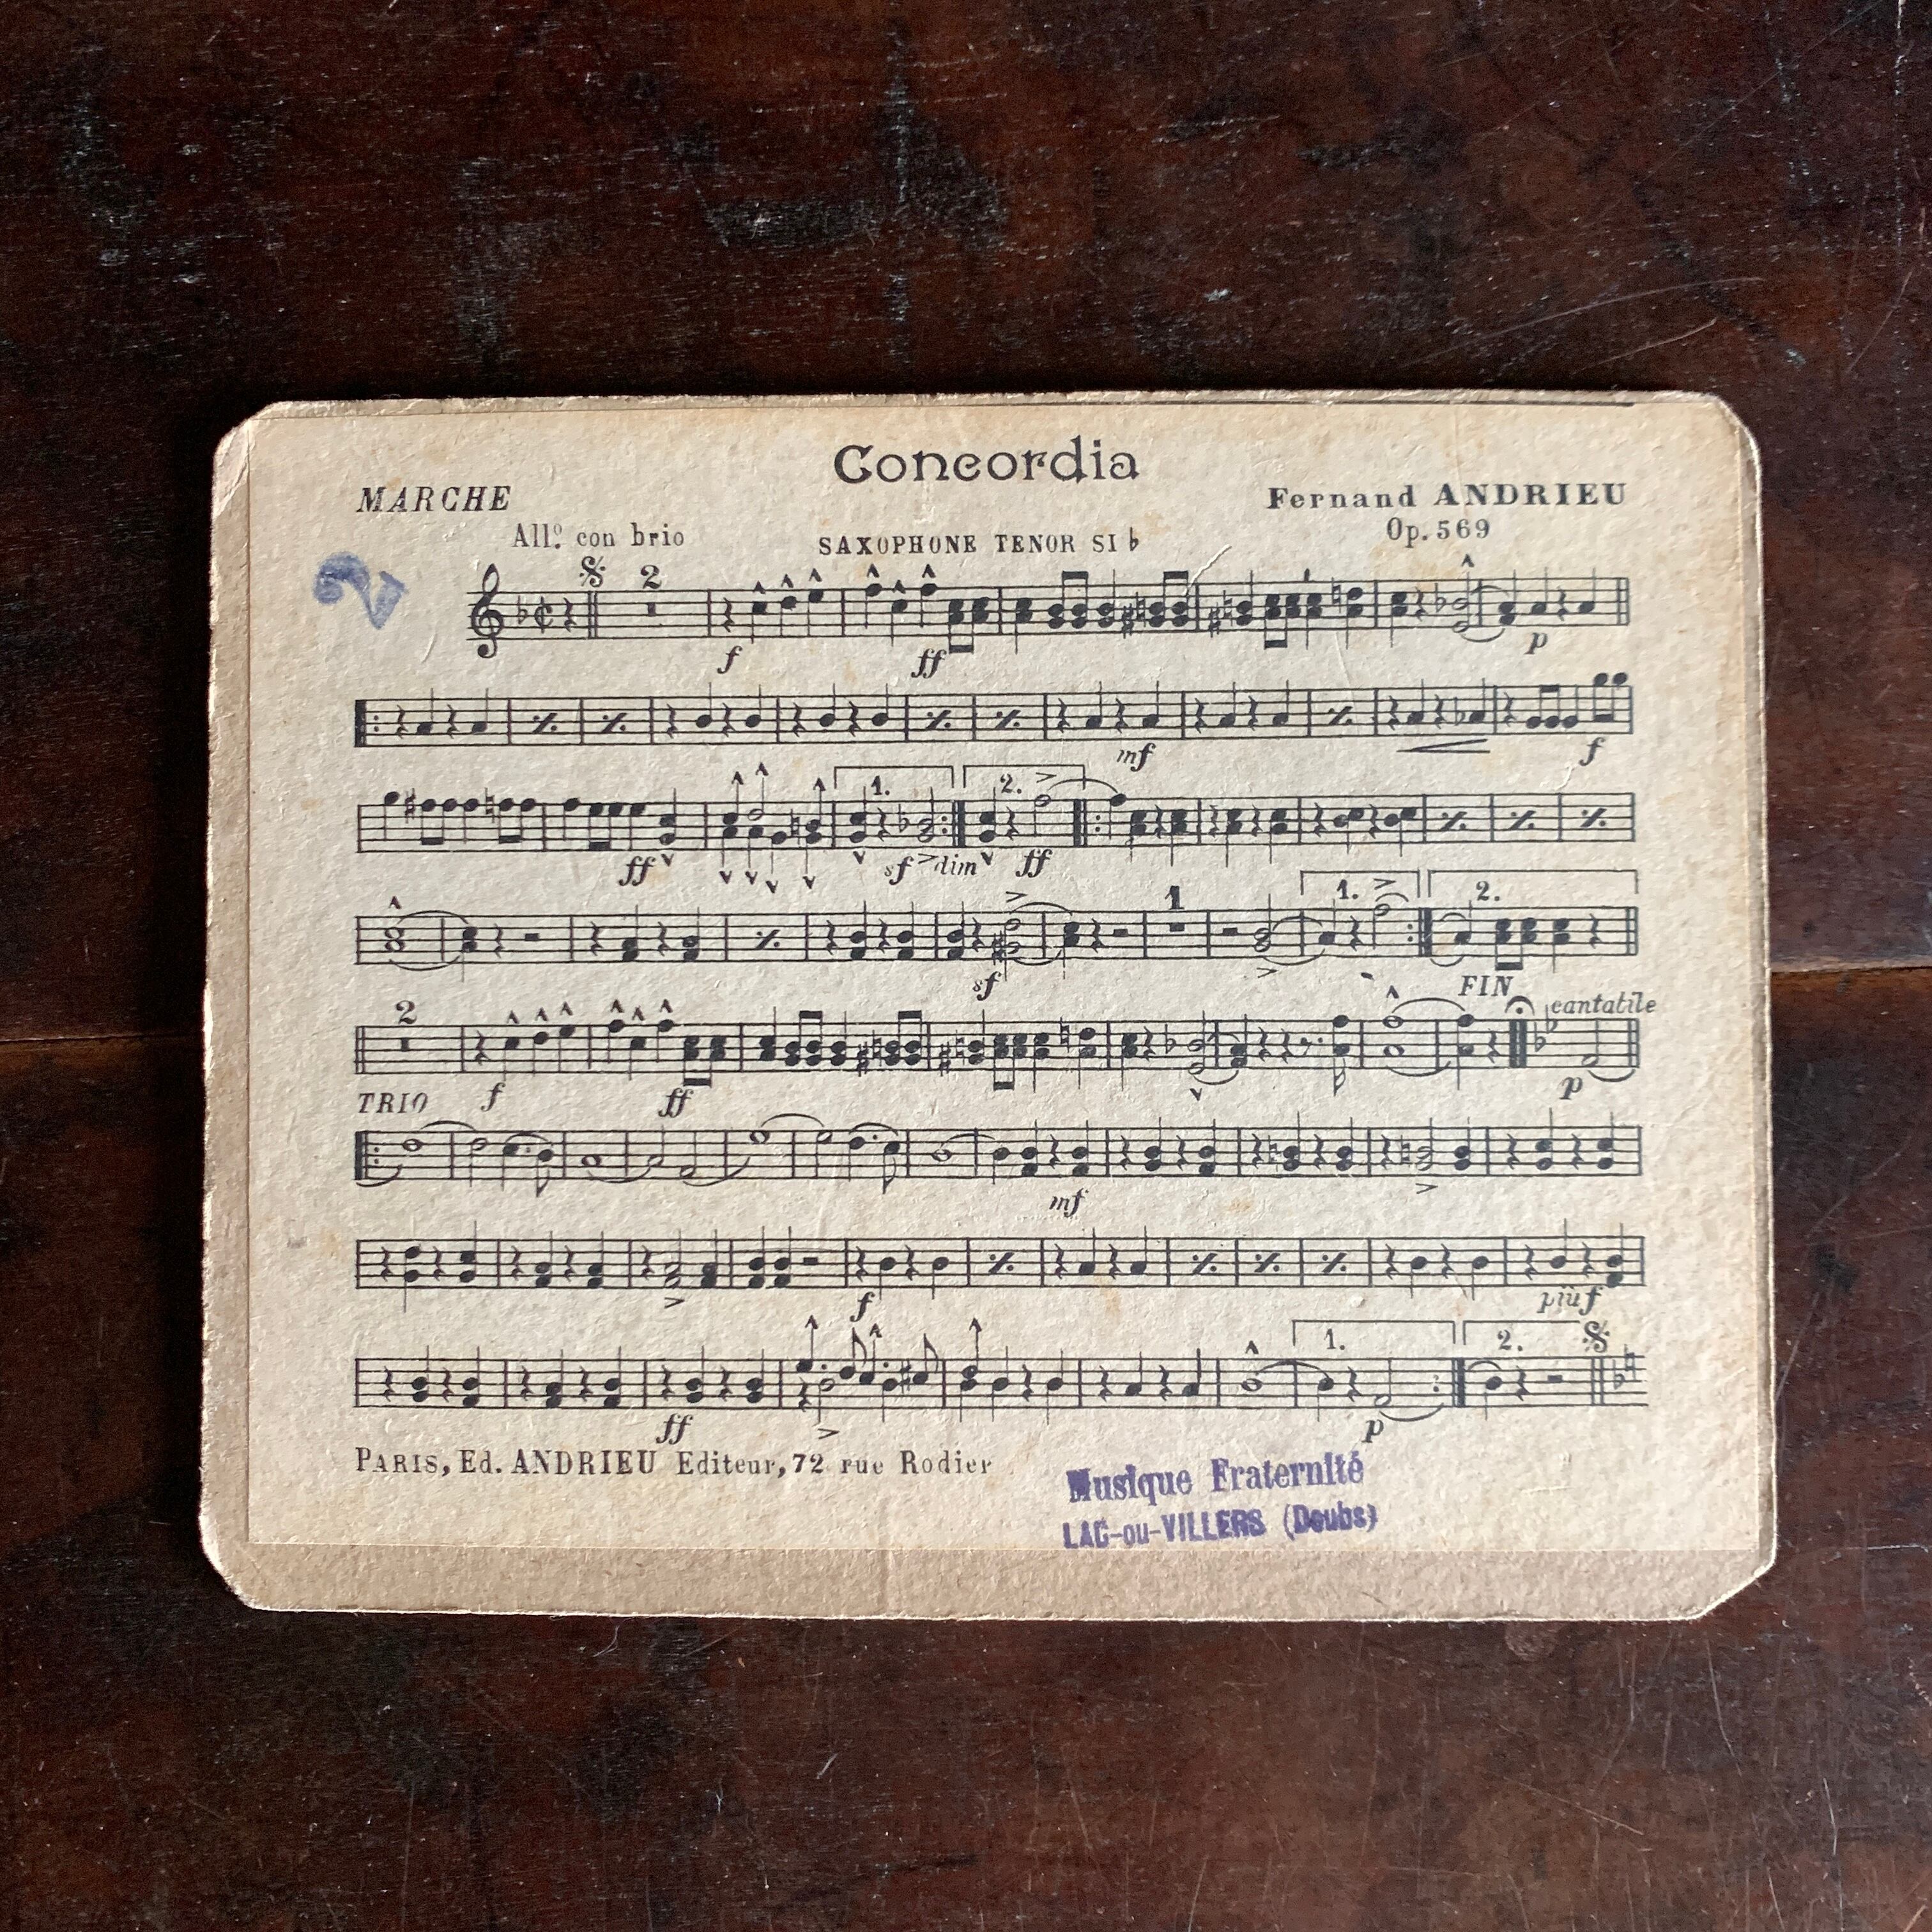 Concordia
MARCHE
Fernand ANDRIEU
All.º con brio
SAXOPHONE TENOR SI ♭
Op. 569
2
2
f
ff
p
mf
f
1.
2.
ff
sf
dim
ff
1
1.
2.
sf
FIN
2
cantatile
f
ff
p
TRIO
mf
f
più f
1.
2.
ff
p
PARIS, Ed. ANDRIEU Editeur, 72 rue Rodier
Musique Fraternité
LAC-ou-VILLERS (Doubs)